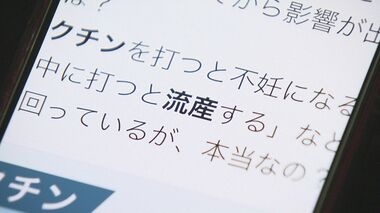 は？　てから影響が出
クチンを打つと不妊になる
中に打つと流産する」など
回っているが、本当なの？
クチン